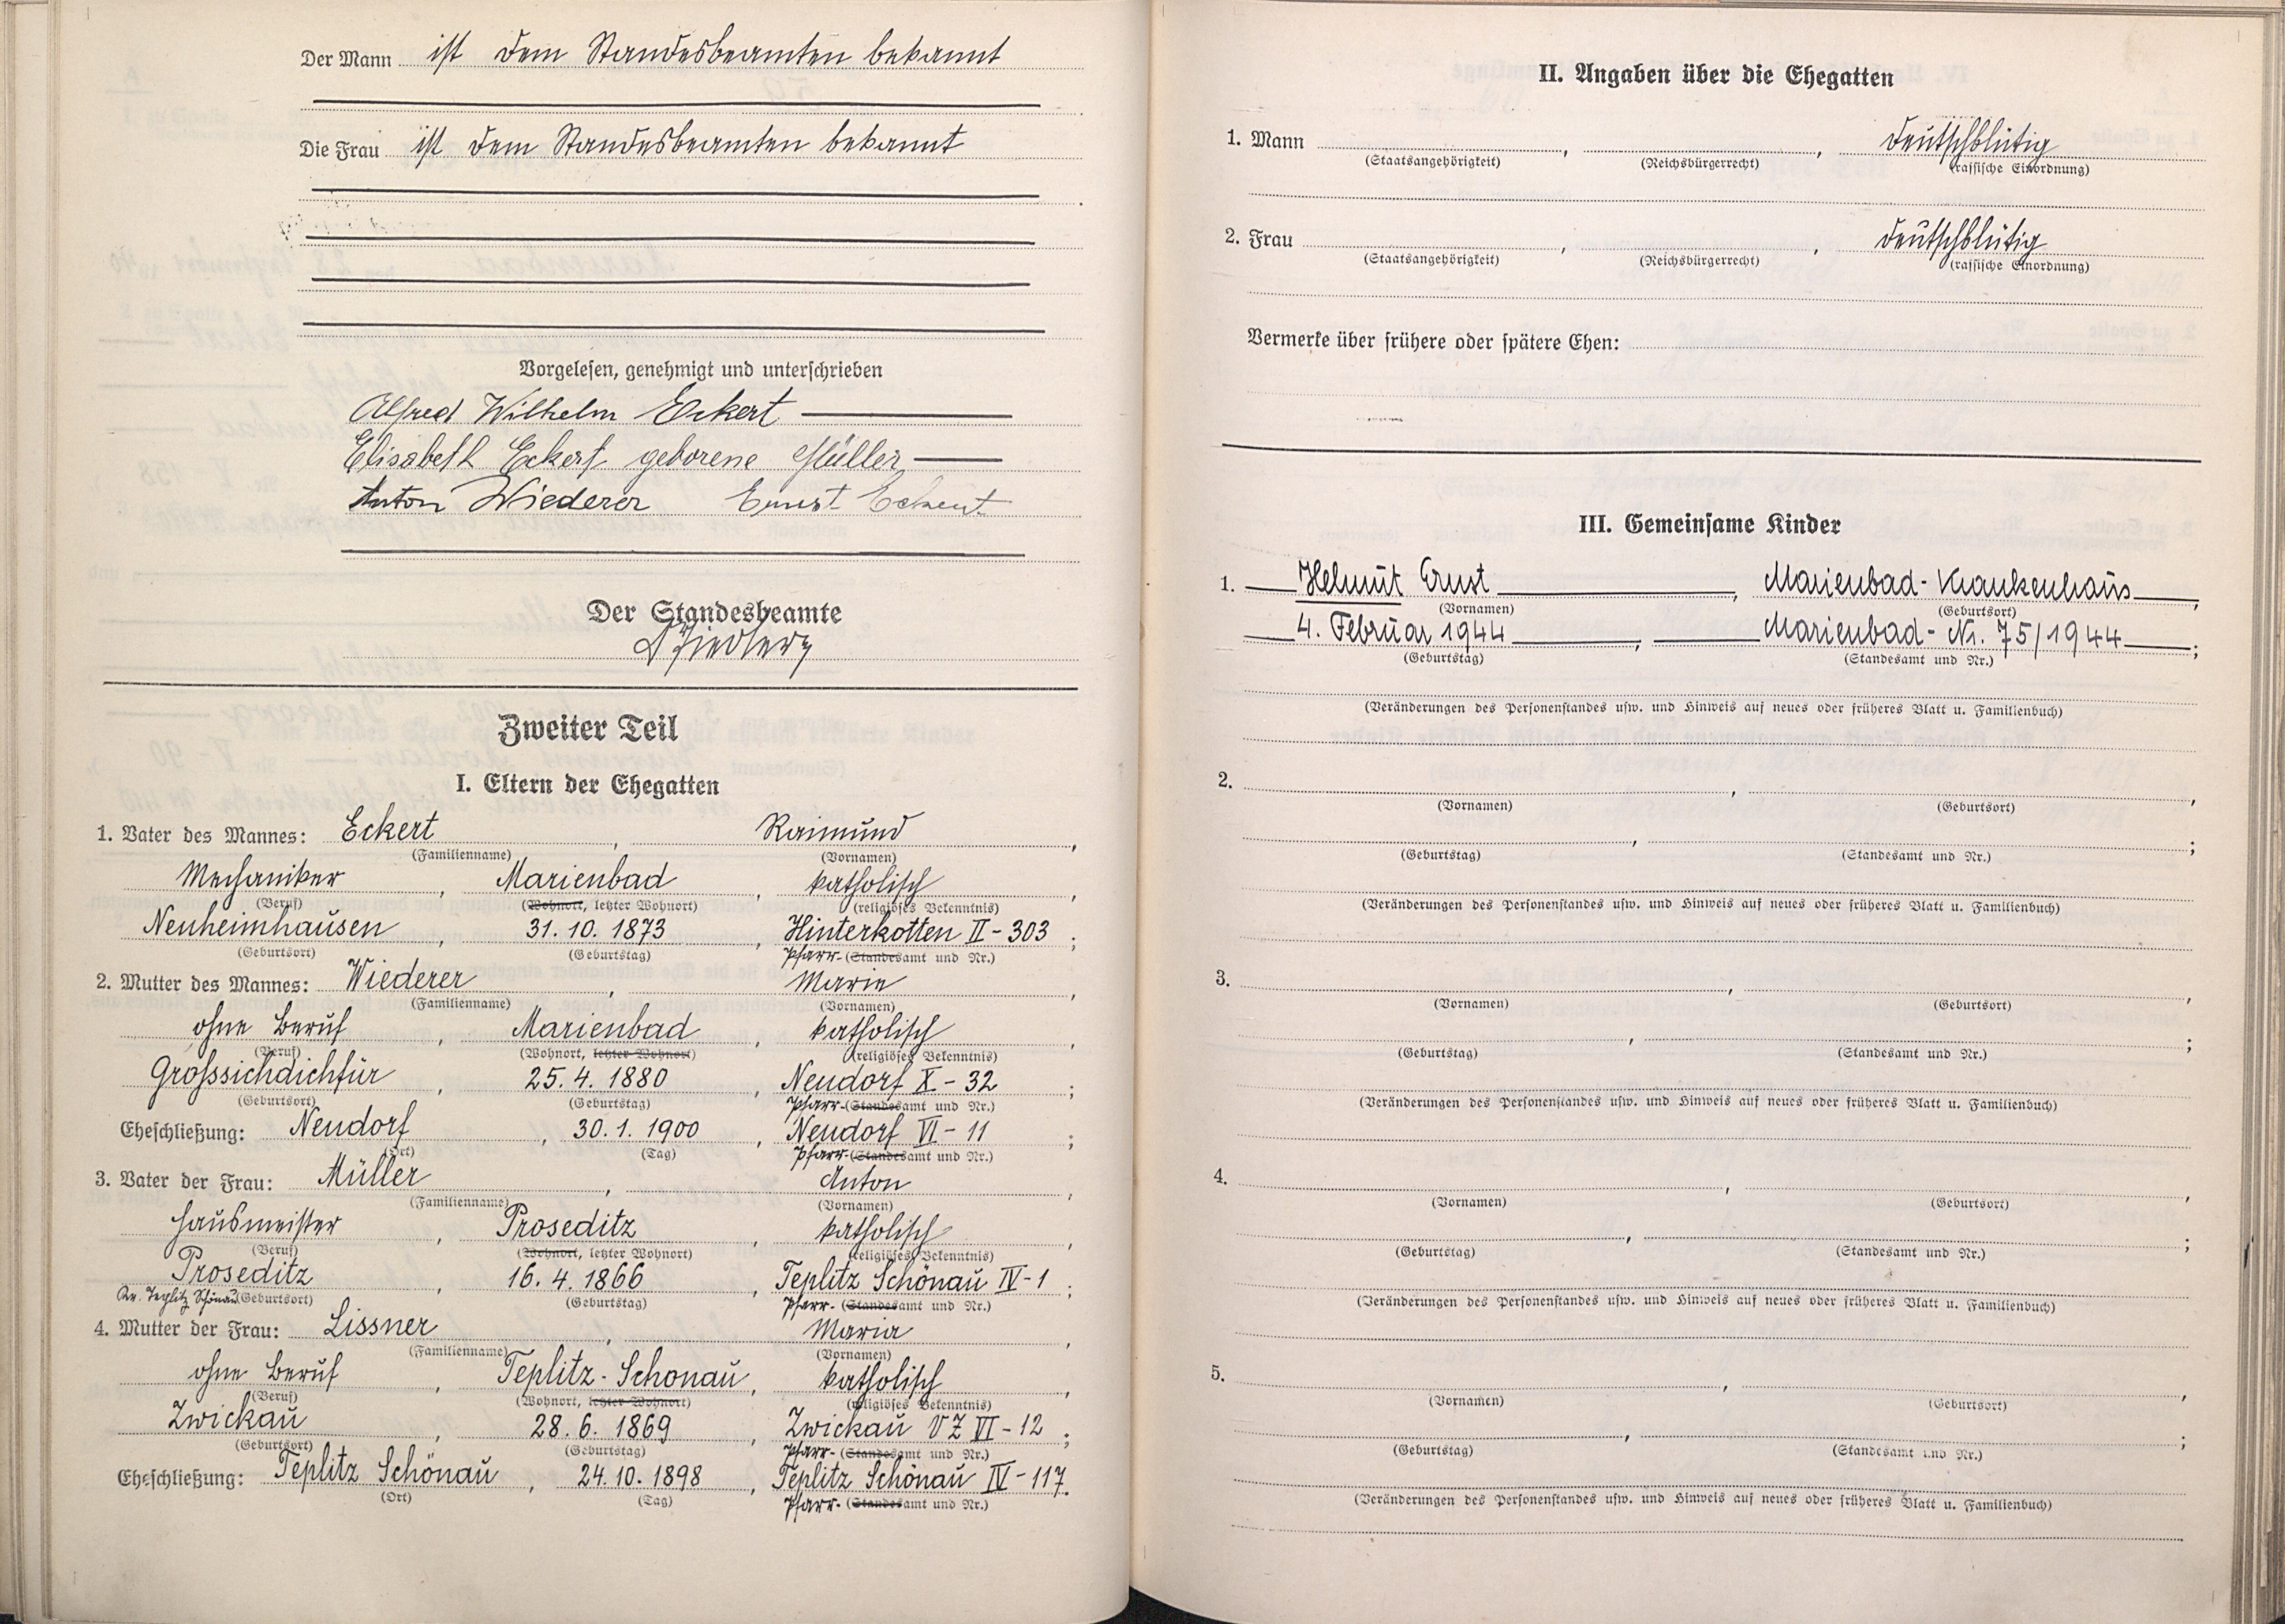 Der Mann ist dem Standesbeamten bekannt
Die Frau ist dem Standesbeamten bekannt
Vorgelesen, genehmigt und unterschrieben
Alfred Wilhelm Eckert
Elisabeth Eckert geborene Müller
Anton Wiederer Ernst Eckert
Der Standesbeamte
Zweiter Teil
I. Eltern der Ehegatten
1. Vater des Mannes: Eckert, Raimund,
(Familienname) (Vornamen)
Mechaniker, Marienbad, katholisch,
(Beruf) (Wohnort, letzter Wohnort) (religiöses Bekenntnis)
Neuheimhausen, 31. 10. 1873, Hinterkotten II - 303;
(Geburtsort) (Geburtstag) Pfarr- (Standesamt und Nr.)
2. Mutter des Mannes: Wiederer, Marie,
(Familienname) (Vornamen)
ohne Beruf, Marienbad, katholisch,
(Beruf) (Wohnort, letzter Wohnort) (religiöses Bekenntnis)
Grosssichdichfür, 25. 4. 1880, Neudorf X - 32;
(Geburtsort) (Geburtstag) Pfarr- (Standesamt und Nr.)
Eheschließung: Neudorf, 30. 1. 1900, Neudorf VI - 11;
(Ort) (Tag) Pfarr- (Standesamt und Nr.)
3. Vater der Frau: Müller, Anton,
(Familienname) (Vornamen)
Hausmeister, Proseditz, katholisch,
(Beruf) (Wohnort, letzter Wohnort) (religiöses Bekenntnis)
Proseditz, 16. 4. 1866, Teplitz Schönau IV - 1;
Kr. Teplitz Schönau (Geburtsort) (Geburtstag) Pfarr- (Standesamt und Nr.)
4. Mutter der Frau: Lissner, Maria,
(Familienname) (Vornamen)
ohne Beruf, Teplitz - Schönau, katholisch,
(Beruf) (Wohnort, letzter Wohnort) (religiöses Bekenntnis)
Zwickau, 28. 6. 1869, Zwickau VZ VI - 12;
(Geburtsort) (Geburtstag) Pfarr- (Standesamt und Nr.)
Eheschließung: Teplitz Schönau, 24. 10. 1898, Teplitz Schönau IV - 117.
(Ort) (Tag) Pfarr- (Standesamt und Nr.)
II. Angaben über die Ehegatten
1. Mann , , deutschblütig
(Staatsangehörigkeit) (Reichsbürgerrecht) (rassische Einordnung)
2. Frau , , deutschblütig
(Staatsangehörigkeit) (Reichsbürgerrecht) (rassische Einordnung)
Vermerke über frühere oder spätere Ehen:
III. Gemeinsame Kinder
1. Helmut Ernst, Marienbad - Krankenhaus,
(Vornamen) (Geburtsort)
4. Februar 1944, Marienbad - Nr. 75/1944;
(Geburtstag) (Standesamt und Nr.)
(Veränderungen des Personenstandes usw. und Hinweis auf neues oder früheres Blatt u. Familienbuch)
2. , ,
(Vornamen) (Geburtsort)
, ;
(Geburtstag) (Standesamt und Nr.)
(Veränderungen des Personenstandes usw. und Hinweis auf neues oder früheres Blatt u. Familienbuch)
3. , ,
(Vornamen) (Geburtsort)
, ;
(Geburtstag) (Standesamt und Nr.)
(Veränderungen des Personenstandes usw. und Hinweis auf neues oder früheres Blatt u. Familienbuch)
4. , ,
(Vornamen) (Geburtsort)
, ;
(Geburtstag) (Standesamt und Nr.)
(Veränderungen des Personenstandes usw. und Hinweis auf neues oder früheres Blatt u. Familienbuch)
5. , ,
(Vornamen) (Geburtsort)
, ;
(Geburtstag) (Standesamt und Nr.)
(Veränderungen des Personenstandes usw. und Hinweis auf neues oder früheres Blatt u. Familienbuch)